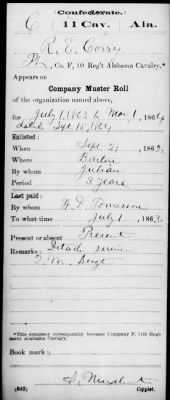 (Confederate.)
C 11 Cav. Ala.
R. E. Corry
Pt., Co. F, 10 Reg't Alabama Cavalry.*
Appears on
Company Muster Roll
of the organization named above,
for July 1, 1863 to Mar 1, 1864
dated Sept 15, 1864
Enlisted:
When Sept 21, 1862.
Where Barton
By whom Julian
Period 3 years
Last paid:
By whom
To what time July 1, 1863.
Present or absent Present
Remarks: Detach service
Q. M. Sergt
*This company subsequently became Company F, 11th Regiment Alabama Cavalry.
Book mark:
(642) Copyist.